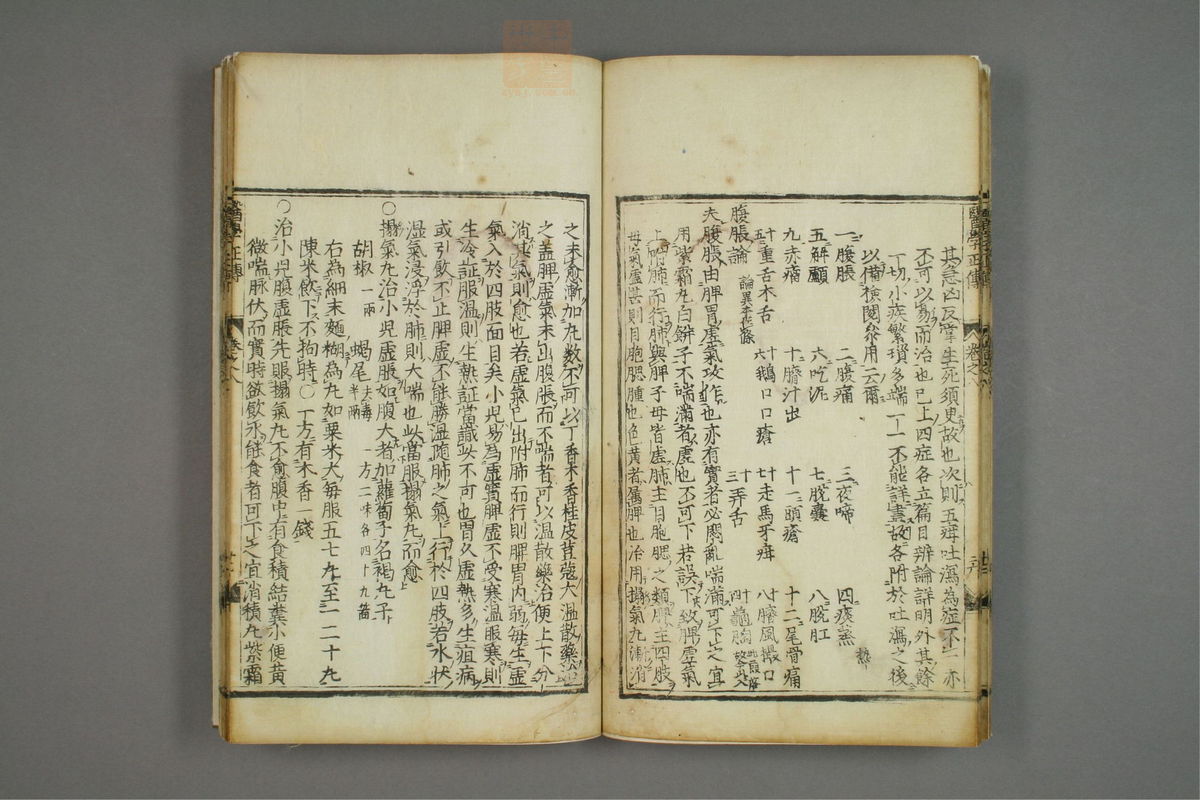 其急凶反掌生死須臾故也次則五疳吐瀉為症不一亦
不可以易而治也已上四症各立篇目辨論詳明外其餘
一切小疾繁瑣多端一一不能詳盡故各附於吐瀉之後
以備檢閱參用云爾
一腹脹 二腹痛 三夜啼 四痰熱
五解顱 六吃泥 七脫囊 八脫肛
九赤瘤 十臍汁出 十一頭瘡 十二尾骨痛
重舌木舌 鵝口口瘡 走馬牙疳 臍風撮口
弄舌 龜胸
腹脹論
夫腹脹由脾胃虛氣攻作也亦有實者必悶亂喘滿可下之宜
用紫霜丸白餅子不喘滿者虛也不可下若誤下致脾虛氣
上附肺而行肺與脾子母皆虛肺主目胞腮之類脾主四肢
母氣虛甚則目胞腮腫也色黃者屬脾也治用搨氣丸漸消
之未愈漸加丸數不可以丁香木香桂皮荳蔻大溫散藥治
之蓋脾虛氣未出腹脹而不喘者可以溫散藥治便上下分
消其氣則愈也若虛氣已出附肺而行則脾胃內弱每生虛
氣入於四肢面目矣小兒易為虛實脾虛不受寒溫服寒則
生冷証服溫則生熱証當識此不可也胃久虛熱多生疽病
或引飲不止脾虛不能勝溫隨肺之氣上行於四肢若水狀
湿氣浸浮於肺則大喘也此當服搨氣丸而愈
○搨氣丸治小兒虛脹如腹大者加蘿蔔子名褐丸子
胡椒一兩 蝎尾去毒半兩 一方二味各四十九箇
右為細末麵糊為丸如粟米大每服五七丸至一二十丸
陳米飲下不拘時○丁方有木香一錢
○治小兒腹虛脹先服搨氣丸不愈腹中有食積結糞小便黃
微喘脉伏而實時飲水能食者可下之宜消積丸紫霜
醫學正傳 卷之八